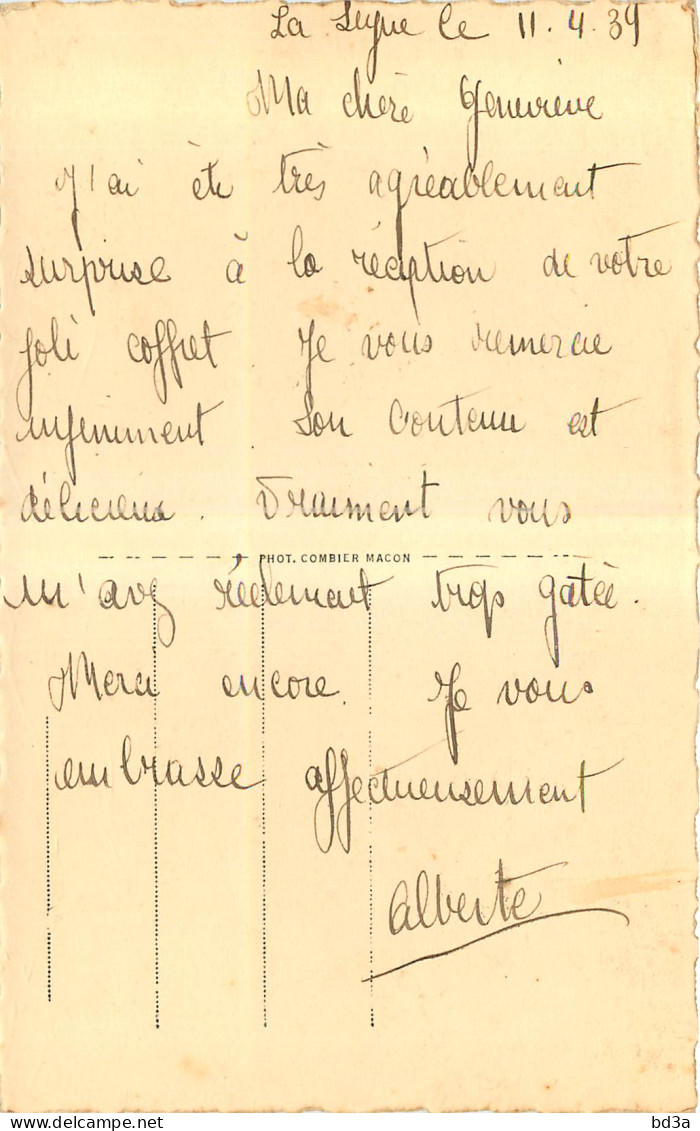 La Seyne le 11.4.39
Ma chère Geneviève
J'ai été très agréablement
surprise à la réception de votre
joli coffret. Je vous remercie
infiniment. Son contenu est
délicieux. Vraiment vous
PHOT. COMBIER MACON
m'avez réellement trop gatée.
Merci encore. Je vous
embrasse affectueusement
Alberte
bd3a